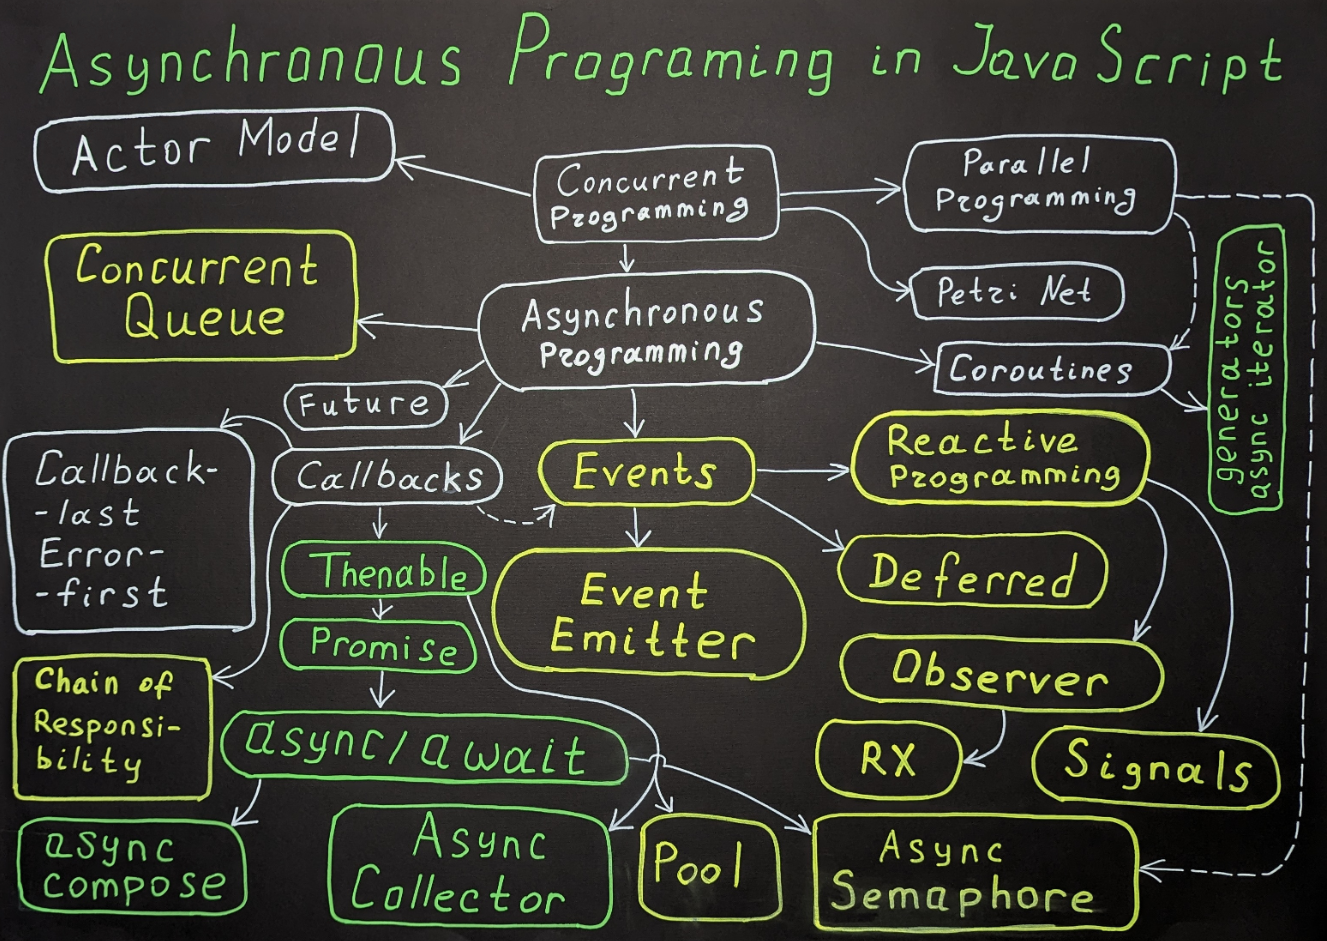 Asynchronous Programing in JavaScript
Actor Model
Concurrent
Programming
Parallel
Programming
Concurrent
Queue
Asynchronous
Programming
Petri Net
Coroutines
generators
async iterator
Future
Callback-
-last
Error-
-first
Callbacks
Events
Reactive
Programming
Thenable
Event
Emitter
Deferred
Promise
Observer
Chain of
Responsi-
bility
async/await
RX
Signals
async
compose
Async
Collector
Pool
Async
Semaphore